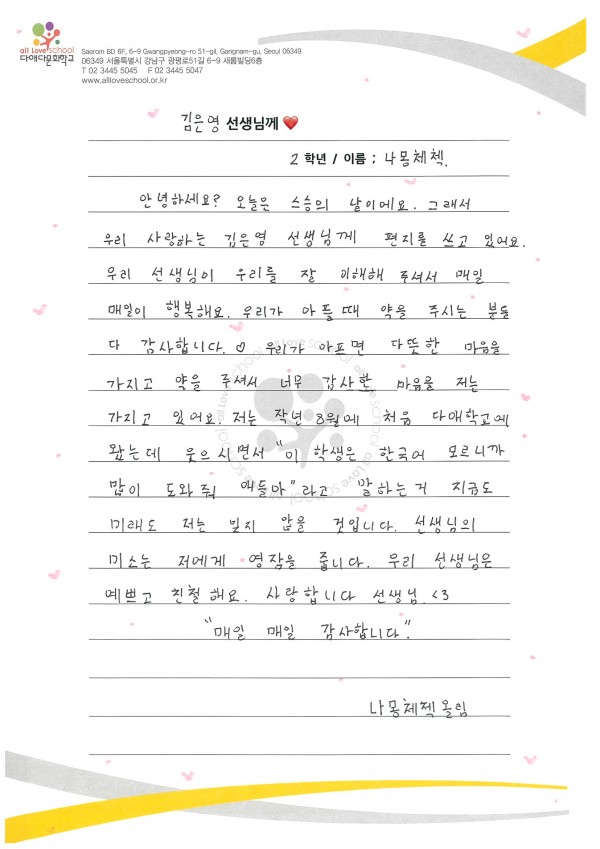 all Love school
다애다문화학교
Saerom BD 6F, 6-9 Gwangpyeong-ro 51-gil, Gangnam-gu, Seoul 06349
06349 서울특별시 강남구 광평로51길 6-9 새롬빌딩6층
T 02 3445 5045 F 02 3445 5047
www.alloveschool.or.kr
김은영 선생님께 ❤️
2 학년 / 이름 ; 나몽체첵.
안녕하세요? 오늘은 스승의 날이에요. 그래서
우리 사랑하는 김은영 선생님께 편지를 쓰고 있어요.
우리 선생님이 우리를 잘 이해해 주셔서 매일
매일이 행복해요. 우리가 아플때 약을 주시는 분들
다 감사합니다. ♡ 우리가 아프면 다뜻한 마음을
가지고 약을 주셔서 너무 감사한 마음을 저는
가지고 있어요. 저는 작년 8월에 처음 다애학교에
왔는데 웃으시면서 "이 학생은 한국어 모르니까
많이 도와줘 얘들아"라고 말하는거 지금도
미래도 저는 잊지 않을 것입니다. 선생님의
미소는 저에게 영감을 줍니다. 우리 선생님은
예쁘고 친절해요. 사랑합니다 선생님. <3
"매일 매일 감사합니다".
나몽체첵올림
all Love school all Love school all Love school